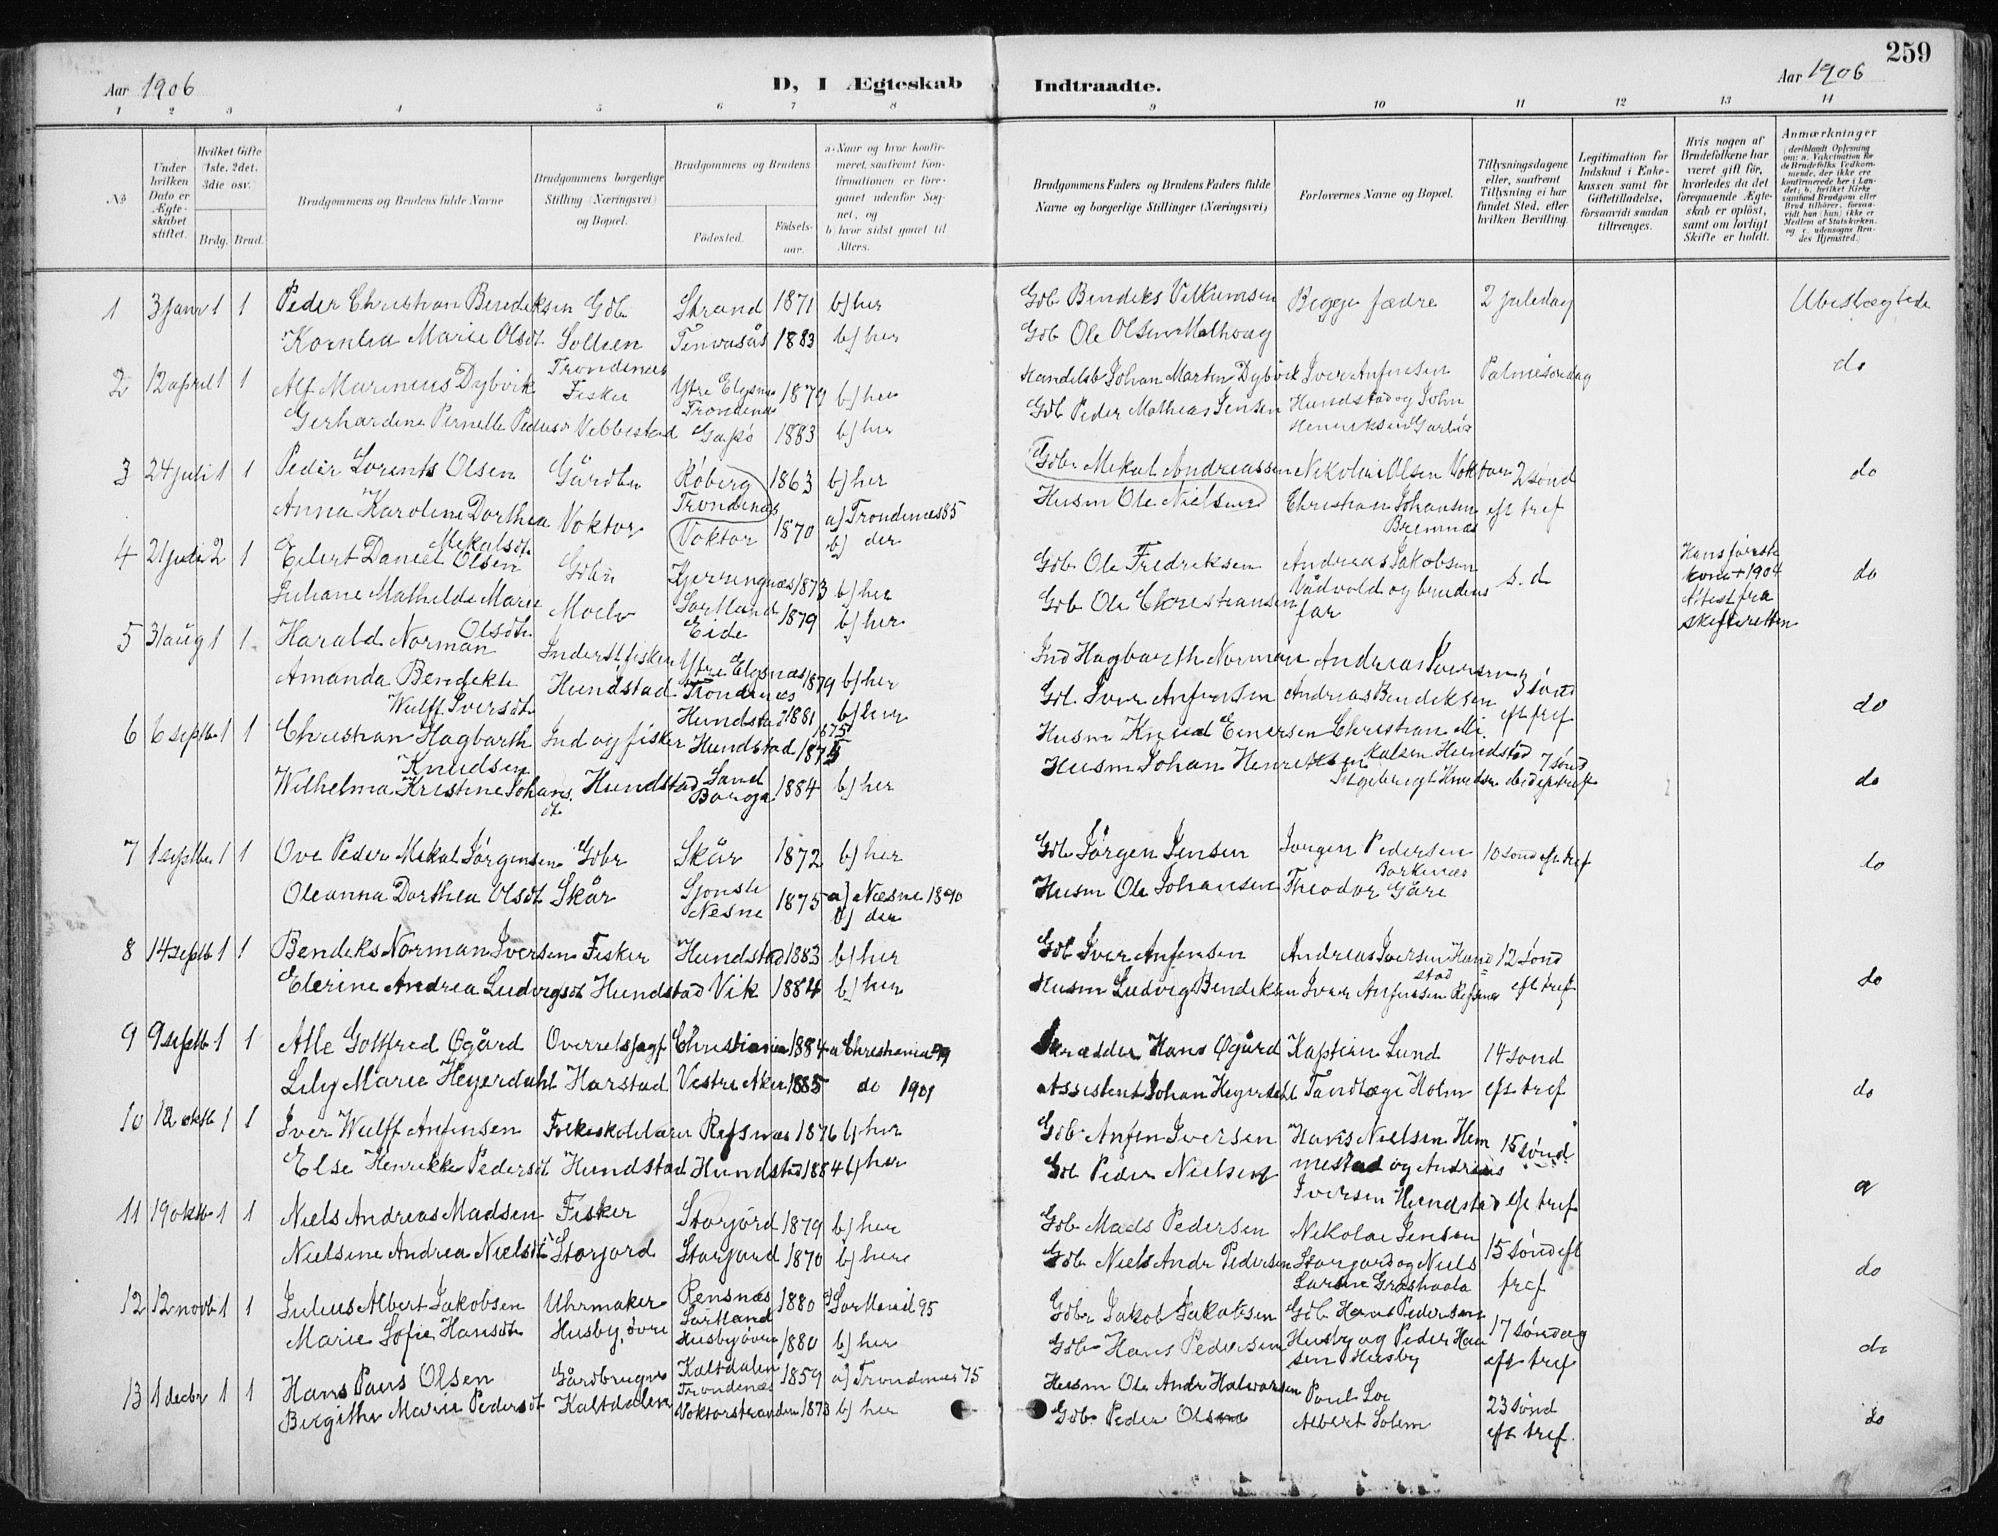 259
Aar 1906
D, I Ægteskab Indtraadte.
Aar 1906
1 2 3 4 5 6 7 8 9 10 11 12 13 14
№
Under hvilken Dato er Ægteskabet stiftet.
Hvilket Gifte (1ste, 2det, 3die osv.)
Brdg. Brud.
Brudgommens og Brudens fulde Navne
Brudgommens borgerlige Stilling (Næringsvei) og Bopæl.
Brudgommens og Brudens
Fødested. Fødselsaar.
a: Naar og hvor konfirmeret, saafremt Konfirmationen er foregaaet udenfor Sognet, og
b: hvor sidst gaaet til Alters.
Brudgommens Faders og Brudens Faders fulde Navne og borgerlige Stillinger (Næringsvei)
Forlovernes Navne og Bopæl.
Tillysningsdagene eller, saafremt Tillysning ei har fundet Sted, efter hvilken Bevilling.
Legitimation for Indskud i Enkekassen samt for Giftetilladelse, forsaavidt saadan tiltrænges.
Hvis nogen af Brudefolkene har været gift før, hvorledes da det foregaaende Ægteskab er opløst, samt om lovligt Skifte er holdt.
Anmærkninger (deriblandt Oplysning om: a. Vakcination for de Brudefolks Vedkommende, der ikke ere konfirmerede her i Landet; b. hvilket Kirkesamfund Brudgom eller Brud tilhører, forsaavidt han (hun) ikke er Medlem af Statskirken, og c. udensogns Brudes Hjemsted.)
1 3 janr 1 1 Peder Christian Bendiksen Gdb Strand 1871 b) her Gdb Bendiks Begge fædre 2 juledag Ubeslægtede
Kornelia Marie Olsdt Sollien Tennvasås 1883 b) her Gdb Ole Olsen
2 12 april 1 1 Alf Marinius Dybvik Trondenes Fisker Ytre Elgsnes Trondenes 1879 b) her Handelsb Johan Martin Dybvik Iver Anfinsen Palmesøndag do
Gerhardine Pernelle Pedersd Vebbestad Gapø 1883 b) her Gdb Peder Mathias Jensen Hundstad og John Henriksen
3 24 juli 1 1 Peder Lorents Olsen Gårdbr Røberg Trondenes 1863 b) her Gdb Mekal Andreassen Nikolai Olsen Voktor 2 sønd do
Anna Karoline Dorthea Mekalsdt Voktor Voktor 1870 a) Trondenes 85 b) der Husm Ole Nielsen Christian Johansen Bremnes eft tref
4 21 juli 2 1 Eilert Daniel Olsen Gdbr Kjerringnæs Sortland 1873 b) her Gdb Ole Fredriksen Andreas Jakobsen s.d Hans første kone + 1904 do
Juliane Mathilde Marie Olsdt Moelv Eide 1879 b) her Gdb Ole Christiansen Vådvold og brudens far Attest fra skifteretten
5 31 aug 1 1 Harald Norman Inderst fisker Ytre Elgsnæs Trondenes 1879 b) her Ind Hagbarth Norman Andreas Iversen 3 sønd
Amanda Bendikte Wulff Iversdt Hundstad Hundstad 1881 b) her Gdb Iver Anfinsen Andreas Bendiksen eft tref do
6 6 septb 1 1 Christian Hagbarth Knudsen Ind og fisker Hundstad 1875 Husm Knud Einersen Christian Mikalsen Hundstad 7 sønd
Wilhelma Kristine Johansdt Hundstad Sand 1884 b) her Husm Johan Henriksen Ingebrigt Knudsen ibid eft tref do
7 1 septbr 1 1 Ove Peder Mekal Jørgensen Gdbr Skår 1872 b) her Gdb Jørgen Jensen Jørgen Pedersen Borkenæs 10 sønd eft tref do
Oleanna Dorthea Olsdt Skår Sjonste Nesne 1875 a) Næsne 1890 b) der Husm Ole Johansen Theodor Gåre
8 14 septb 1 1 Bendiks Norman Iversen Fisker Hundstad 1883 b) her Gdb Iver Anfinsen Andreas Iversen Hundstad 12 sønd
Elerine Andrea Ludvigsdt Hundstad Vik 1884 b) her Husm Ludvig Bendiksen Iver Anfinsen Refsnes eft tref do
9 9 septb 1 1 Alle Gottfred Øgård Overretssagf Christiania 1884 a Christiania 99 Skrædder Hans Øgård Kaptein Lund 14 sønd
Lily Marie Heyerdahl Harstad Vestre Aker 1885 do 1901 Assistent Johan Heyerdahl Tandlæge Holm eft tref do
10 12 oktb 1 1 Iver Wulff Anfinsen Folkeskolelærer Refsnæs 1876 b) her Gdb Anfin Iversen Hans Nielsen Hemmestad og Andreas Iversen Hundstad 15 sønd eft tref
Else Henrikke Pedersdt Hundstad Hundstad 1884 b) her Gdb Peder Nielsen
11 19 oktb 1 1 Niels Andreas Madsen Fisker Storjord 1879 b) her Gdb Mads Pedersen Nikolai Jensen 15 sønd eft tref
Nielsine Andrea Nielsdt Storjord Storjord 1870 b) her Gdb Niels Andr Pedersen Storjord og Niels Larsen do
12 12 novb 1 1 Julius Albert Jakobsen Uhrmaker Rensnæs Sortland 1880 a) Sortland 95 Gdbr Jakob Jakobsen Gdb Hans Pedersen 17 søndag
Marie Sofie Hansdt Husby, øvre Husby øvre 1880 b) her Gdb Hans Pedersen Husby og Peder Hansen Husby eft tref do
13 1 decbr 1 1 Hans Paus Olsen Gårdbruger Kaltdalen Trondenæs 1859 a) Trondenæs 75 Husm Ole Andr Halvorsen Poul Loe 23 sønd
Birgithe Marie Pedersdt Kaltdalen Voktorstranden 1873 b) her Gdb Peder Olsen Albert Solem eft tref. do